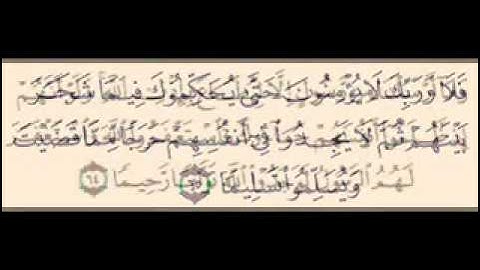 فَلَا وَرَبِّكَ لَا يُؤْمِنُونَ حَتَّىٰ يُحَكِّمُوكَ فِيمَا شَجَرَ
بَيْنَهُمْ ثُمَّ لَا يَجِدُوا فِي أَنفُسِهِمْ حَرَجًا مِّمَّا قَضَيْتَ
لَهُمُ وَيُسَلِّمُوا تَسْلِيمًا رَّحِيمًا ٦٤